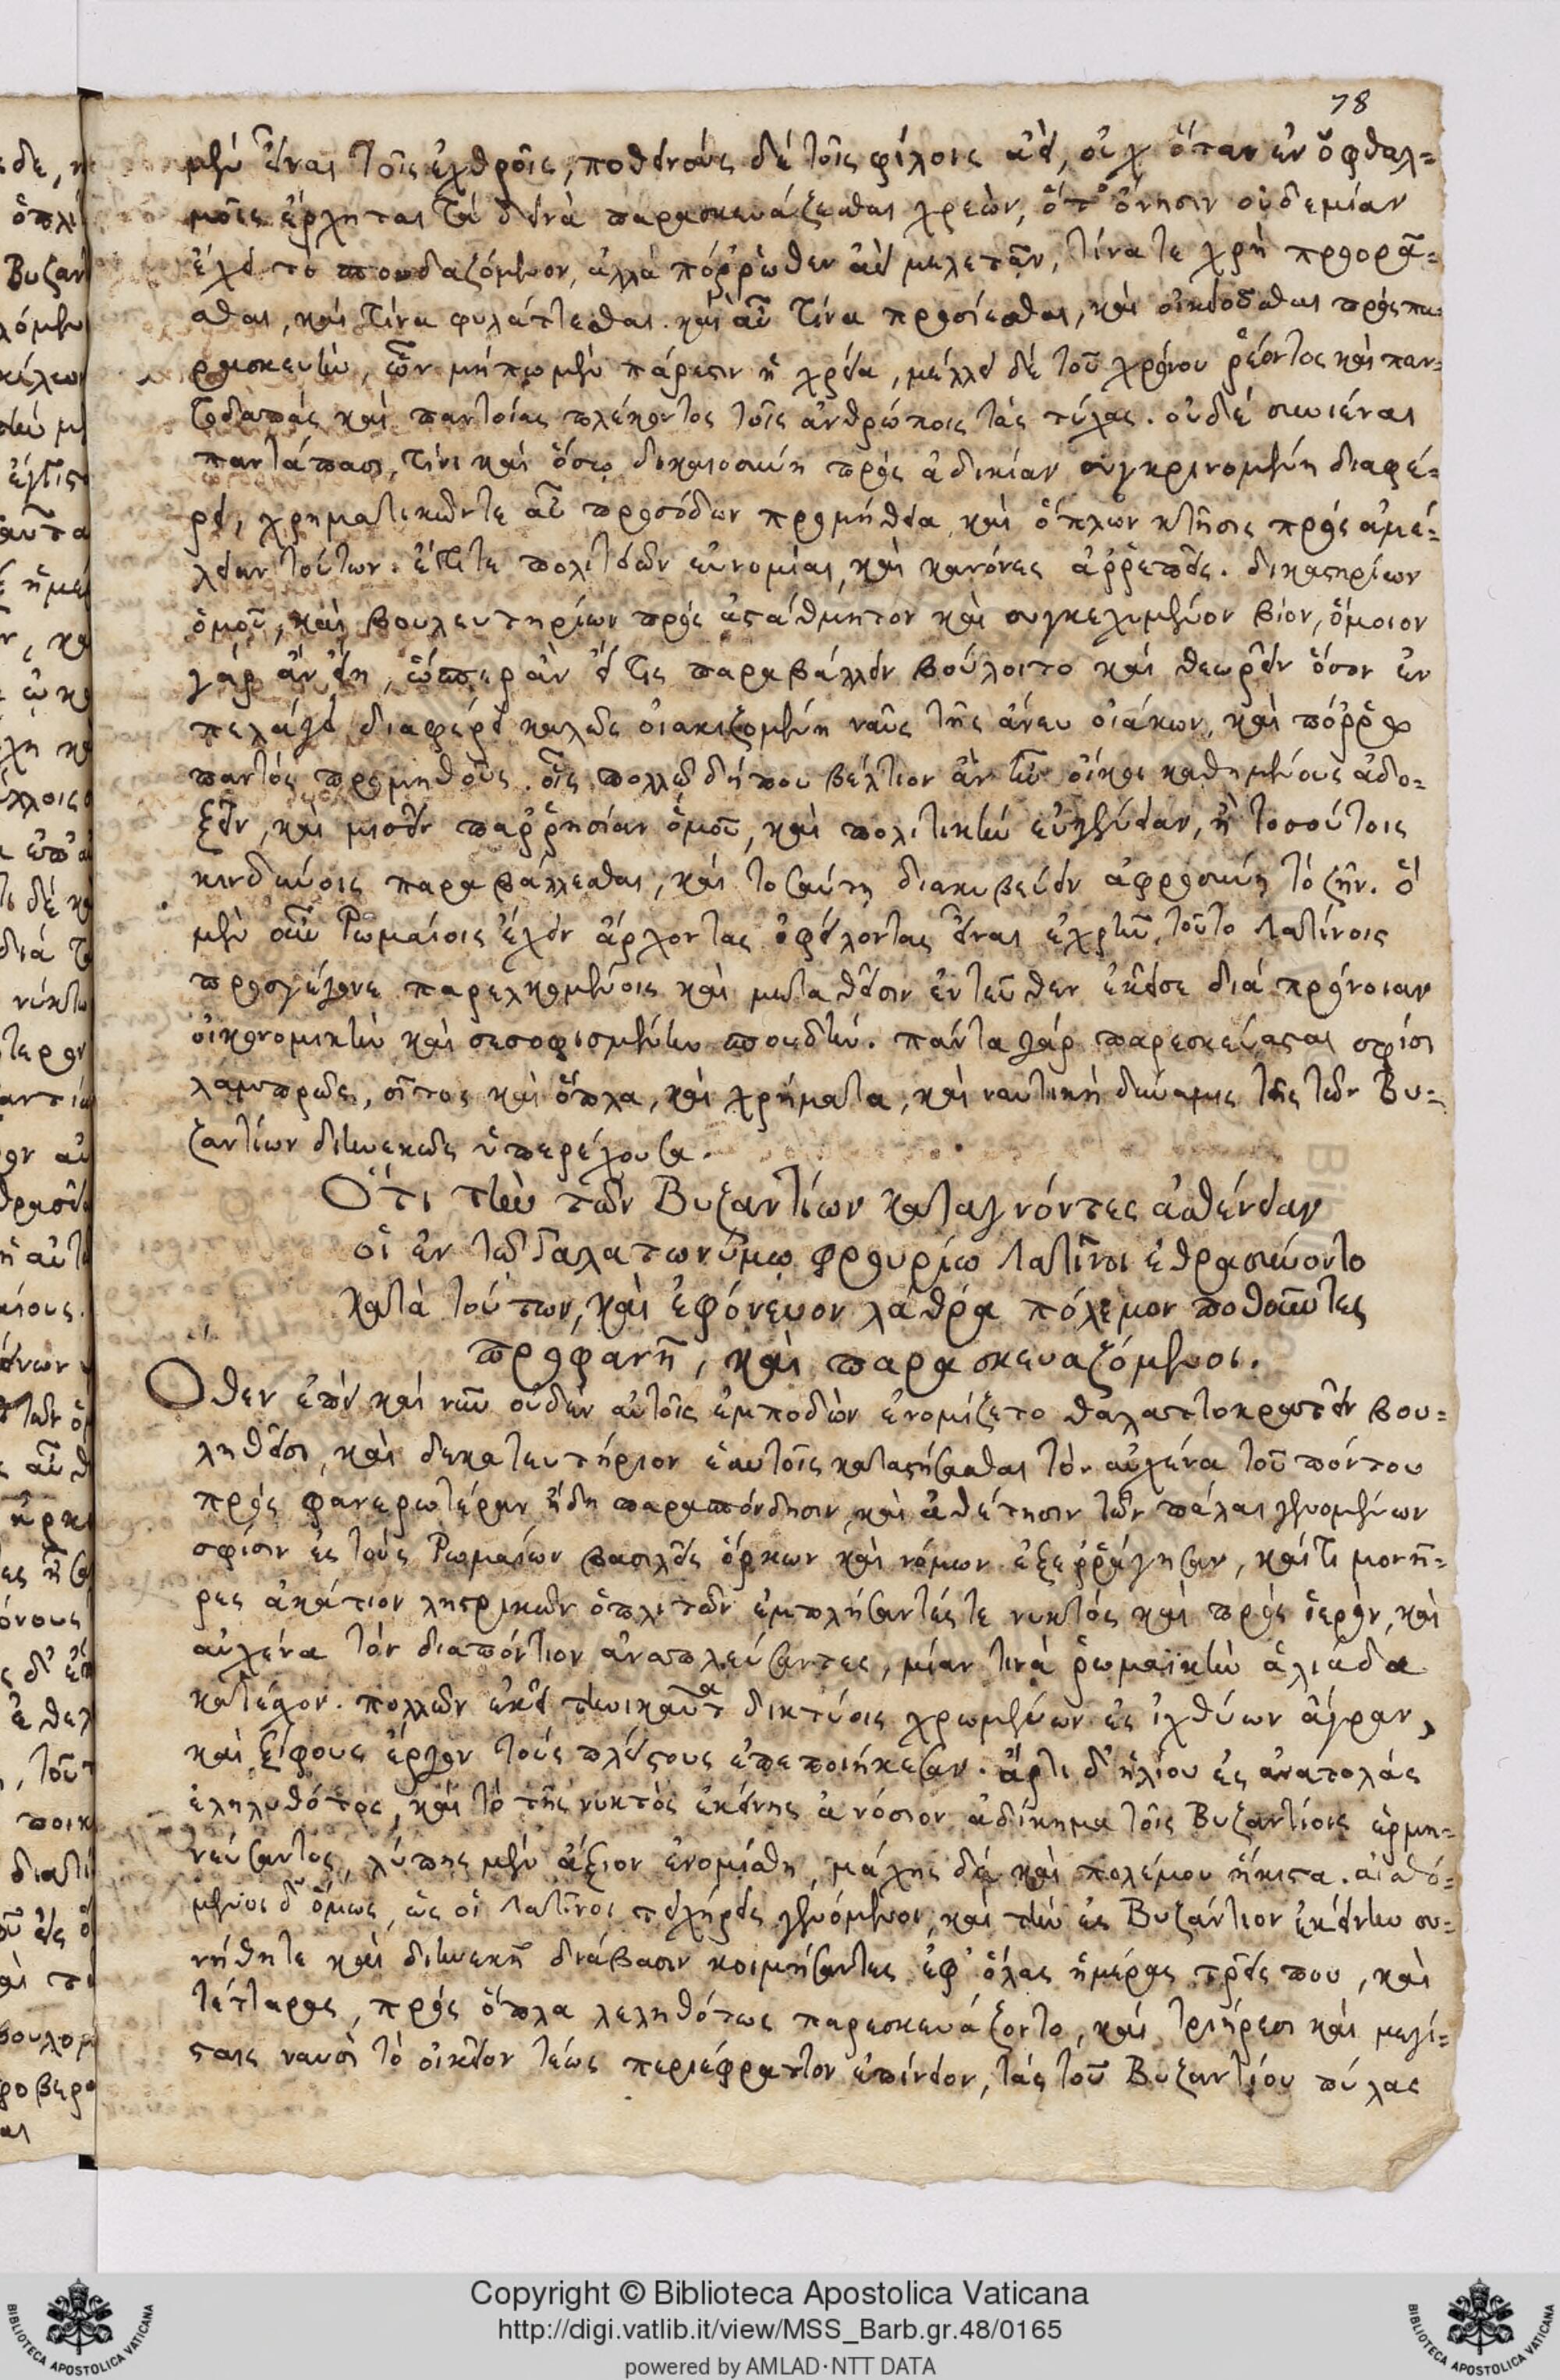 78
μὲν εἶναι τοῖς ἐχθροῖς, ποθεινοὺς δὲ τοῖς φίλοις ἀεί, οὐχ ὅταν ἐν ὀφθαλ=
μοῖς ἔρχηται τὰ δεινὰ παρασκευάζεσθαι χρεών, ὅτ' ὄνησιν οὐδεμίαν
ἔχει τὸ σπουδαζόμενον, ἀλλὰ πόῤῥωθεν ἀεὶ μελετᾶν, τίνα τε χρὴ προορᾶ=
σθαι, καὶ τίνα φυλάττεσθαι. καὶ αὖ τίνα προσίεσθαι, καὶ οἰκειοῦσθαι πρὸς πα=
ρασκευὴν, ὧν μήπω μὲν πάρεστιν ἡ χρεία, μέλλει δὲ τοῦ χρόνου ῥέοντος καὶ παν=
τοδαπὰς καὶ παντοίας πλέκοντος τοῖς ἀνθρώποις τὰς τύχας. οὐδὲ συνιέναι
παντάπασι, τίνι καὶ ὅσῳ δικαιοσύνη πρὸς ἀδικίαν συγκρινομένη διαφέ=
ρει, χρηματικῶν τε αὖ προσόδων προμήθεια, καὶ ὅπλων κτῆσις πρὸς ἀμέ=
λειαν τούτων. ἔτι τε πολιτειῶν εὐνομίαι, καὶ κανόνες ἀῤῥεπεῖς. δικαστηρίων
ὁμοῦ, καὶ βουλευτηρίων πρὸς ἀστάθμητον καὶ συγκεχυμένον βίον, ὅμοιον
γὰρ ἂν εἴη, ὥσπερ ἂν εἴ τις παραβάλλειν βούλοιτο καὶ θεωρεῖν ὅσον ἐν
πελάγει διαφέρει καλῶς οἰακιζομένη ναῦς τῆς ἄνευ οἰάκων, καὶ πόῤῥω
παντὸς προμηθοῦς. οἷς πολλῷ δήπου βέλτιον ἂν ἦν οἴκοι καθημένους ἀδο=
ξεῖν, καὶ μισεῖν παῤῥησίαν ὁμοῦ, καὶ πολιτικὴν εὐγένειαν, ἢ τοσούτοις
κινδύνοις παραβάλλεσθαι, καὶ τοσαύτῃ διακυβεύειν ἀφροσύνῃ τὸ ζῆν. ὃ
μὲν οὖν Ῥωμαίοις ἔχειν ἄρχοντας ὀφείλοντας εἶναι ἐχρῆν, τοῦτο Λατίνοις
προσγέγονε παρελκομένοις καὶ μεταθεῖσιν ἐντεῦθεν ἐκεῖσε διὰ πρόνοιαν
οἰκονομικὴν καὶ σεσοφισμένην σπουδήν. πάντα γὰρ παρεσκεύασται σφίσι
λαμπρῶς, σῖτος καὶ ὅπλα, καὶ χρήματα, καὶ ναυτικὴ δύναμις τῆς τῶν Βυ=
ζαντίων διηνεκῶς ὑπερέχουσα.
Ὅτι τὴν τῶν Βυζαντίων καταγνόντες ἀσθένειαν
οἱ ἐν τῷ Γαλατωνύμῳ φρουρίῳ Λατῖνοι ἐθρασύνοντο
κατὰ τούτων, καὶ ἐφόνευον λάθρᾳ πόλεμον ποθοῦντες
προφανῆ, καὶ παρασκευαζόμενοι.
Ὅθεν ἐπεὶ καὶ νῦν οὐδὲν αὐτοῖς ἐμποδὼν ἐνομίζετο θαλαττοκρατεῖν βου=
ληθεῖσι, καὶ δεκατευτήριον ἑαυτοῖς καταστήσασθαι τὸν αὐχένα τοῦ πόντου
πρὸς φανερωτέραν ἤδη παρασπόνδησιν, καὶ ἀθέτησιν τῶν πάλαι γενομένων
σφίσιν ἐς τοὺς Ῥωμαίων βασιλεῖς ὅρκων καὶ νόμων ἐξεῤῥάγησαν, καί τι μονῆ=
ρες ἀκάτιον λῃστρικῶν ὁπλιτῶν ἐμπλήσαντές τε νυκτὸς καὶ πρὸς ἱερὸν, καὶ
αὐχένα τὸν διαπόντιον ἀναπλεύσαντες, μίαν τινὰ ῥωμαϊκὴν ἁλιάδα
κατέχον. πολλῶν ἐκεῖ τηνικαῦτα δικτύοις χρωμένων ἐς ἰχθύων ἄγραν,
καὶ ξίφους ἔργον τοὺς πλείστους ἐπεποιήκεσαν. ἄρτι δ' ἡλίου ἐς ἀνατολὰς
ἐληλυθότος, καὶ τὸ τῆς νυκτὸς ἐκείνης ἀνόσιον ἀδίκημα τοῖς Βυζαντίοις ἑρμη=
νεύσαντος, λύπης μὲν ἄξιον ἐνομίσθη, μάχης δὲ καὶ πολέμου ἥκιστα. αἰσθό=
μενοι δ' ὅμως, ὡς οἱ Λατῖνοι τειχήρεις γενόμενοι, καὶ τὴν ἐς Βυζάντιον ἐκείνην συ=
νήθη τε καὶ διηνεκῆ διάβασιν κοιμήσαντες ἐφ' ὅλας ἡμέρας τρεῖς που, καὶ
τέτταρας, πρὸς ὅπλα λεληθότως παρεσκευάζοντο, καὶ τριήρεσι καὶ μεγί=
σταις ναυσὶ τὸ οἰκεῖον τέως περιέφραττον ἐπίνειον, τὰς τοῦ Βυζαντίου πύλας
Copyright © Biblioteca Apostolica Vaticana
http://digi.vatlib.it/view/MSS_Barb.gr.48/0165
powered by AMLAD·NTT DATA
BIBLIOTECA APOSTOLICA VATICANA
BIBLIOTECA APOSTOLICA VATICANA